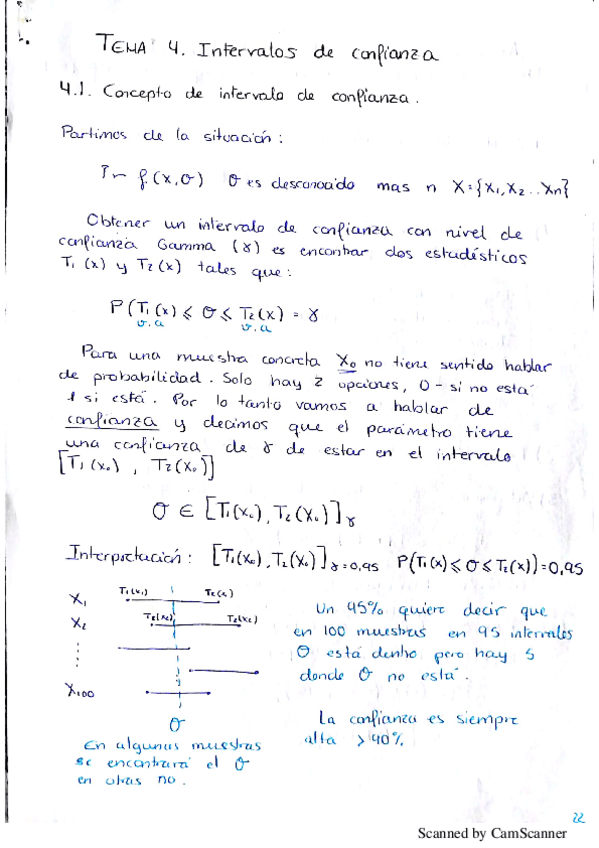 TEMA 4. Intervalos de confianza
4.1. Concepto de intervalo de confianza.
Partimos de la situación:
f(x,σ) σ es desconocido mas n X={x1,x2...Xn}
Obtener un intervalo de confianza con nivel de
confianza Gamma (γ) es encontrar dos estadísticos
T1(x) y T2(x) tales que:
P(T1(x) ≤ σ ≤ T2(x) = γ
v.a v.a
Para una muestra concreta X0 no tiene sentido hablar
de probabilidad. Solo hay 2 opciones, 0 - si no está
1 si está. Por lo tanto vamos a hablar de
confianza y decimos que el parámetro tiene
una confianza de γ de estar en el intervalo
[T1(x0), T2(x0)]
σ ∈ [T1(x0), T2(x0)]γ
Interpretación: [T1(x0), T2(x0)]γ=0,95 P(T1(x) ≤ σ ≤ T2(x))=0,95
X1
X2
X100
σ
En algunas muestras
se encontrará el σ
en otras no.
Un 95% quiere decir que
en 100 muestras en 95 intervalos
σ está dentro pero hay 5
donde σ no está.
La confianza es siempre
alta >90%
22
Scanned by CamScanner